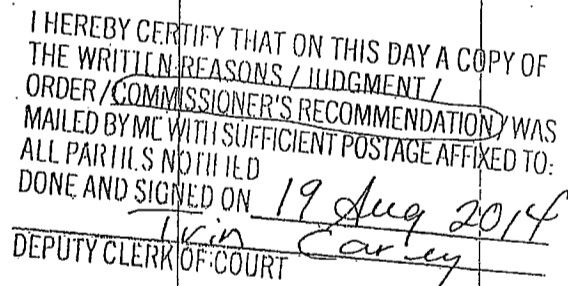 I HEREBY CERTIFY THAT ON THIS DAY A COPY OF
THE WRITTEN REASONS / JUDGMENT /
ORDER / COMMISSIONER'S RECOMMENDATION / WAS
MAILED BY ME WITH SUFFICIENT POSTAGE AFFIXED TO:
ALL PARTIES NOTIFIED
DONE AND SIGNED ON 19 Aug 2014
DEPUTY CLERK OF COURT